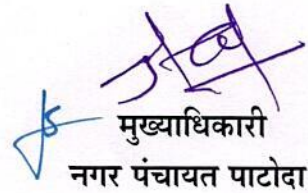 मुख्याधिकारी
नगर पंचायत पाटोदा